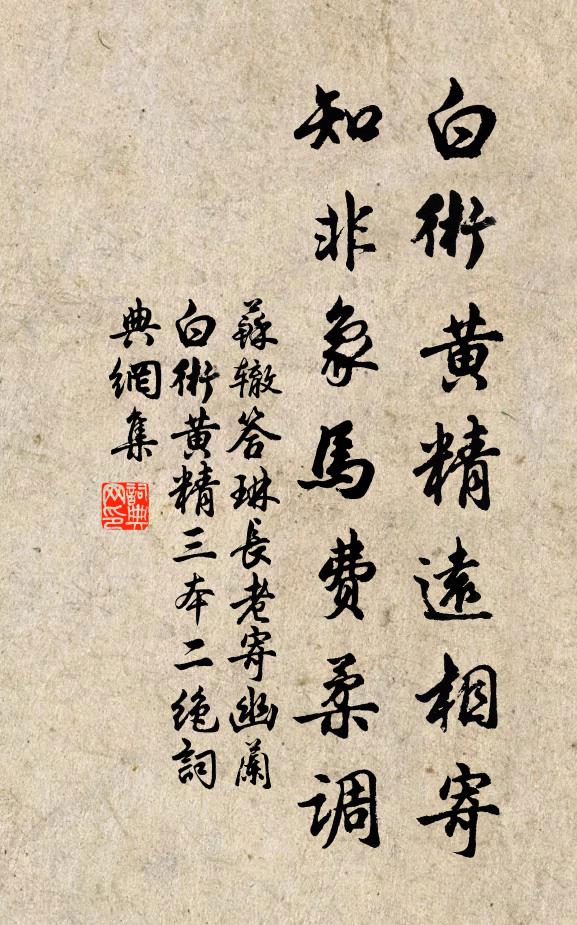 白術黃精遠相寄
知非象馬費柔調
蘇轍答琳長老寄幽蘭
白術黃精三本二絶詞
典網集
詞典網印